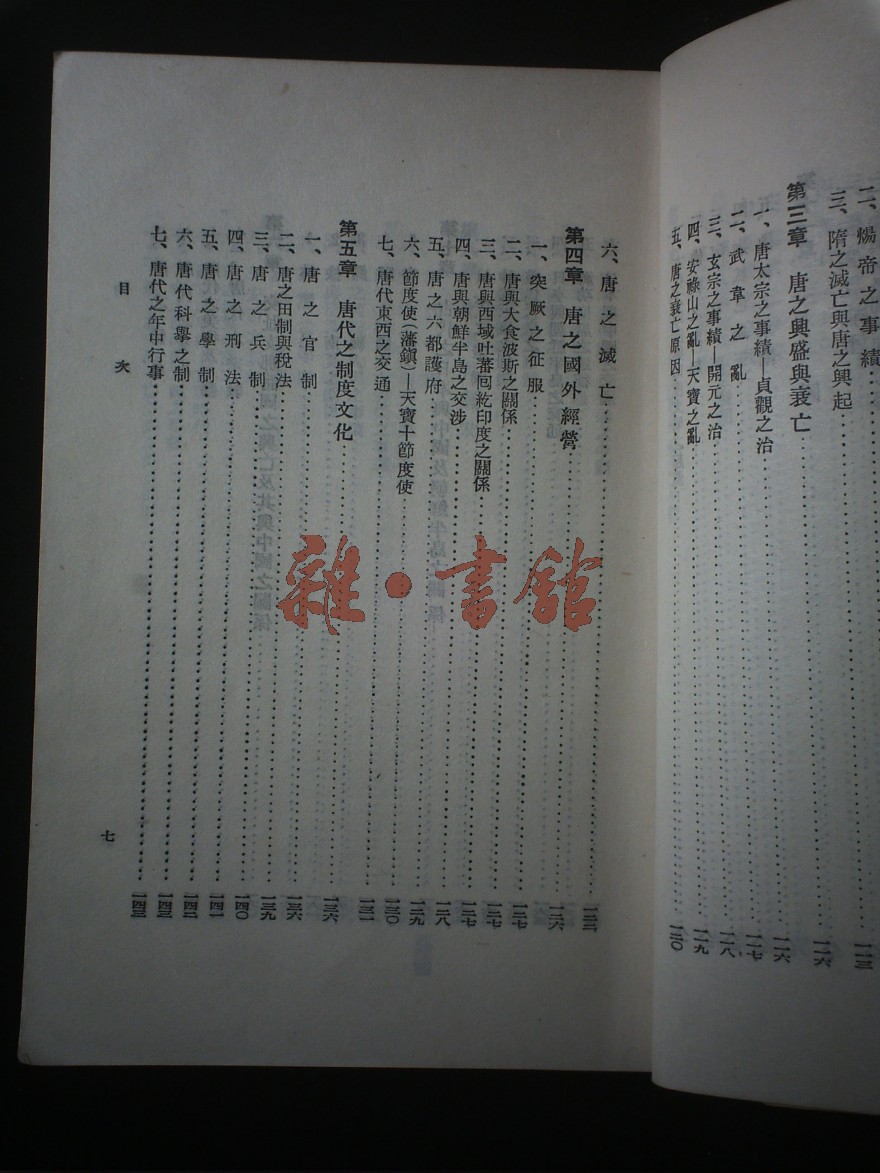 二、煬帝之事績……一一三
三、隋之滅亡與唐之興起……一一六
第三章 唐之興盛與衰亡……一一六
一、唐太宗之事績—貞觀之治……一一七
二、武韋之亂……一一八
三、玄宗之事績—開元之治……一一九
四、安祿山之亂—天寶之亂
五、唐之衰亡原因……一二〇
六、唐之滅亡……一二二
第四章 唐之國外經營……一二六
一、突厥之征服……一二七
二、唐與大食波斯之關係……一二七
三、唐與西域吐蕃回紇印度之關係……一二七
四、唐與朝鮮半島之交涉……一二八
五、唐之六都護府……一二九
六、節度使(藩鎭)—天寶十節度使……一三〇
七、唐代東西之交通……一三一
第五章 唐代之制度文化……一三六
一、唐之官制……一三六
二、唐之田制與稅法……一三九
三、唐之兵制……一四〇
四、唐之刑法……一四一
五、唐代之學制……一四二
六、唐代科擧之制……一四三
七、唐代之年中行事……一四三
目次
七
雜·書館